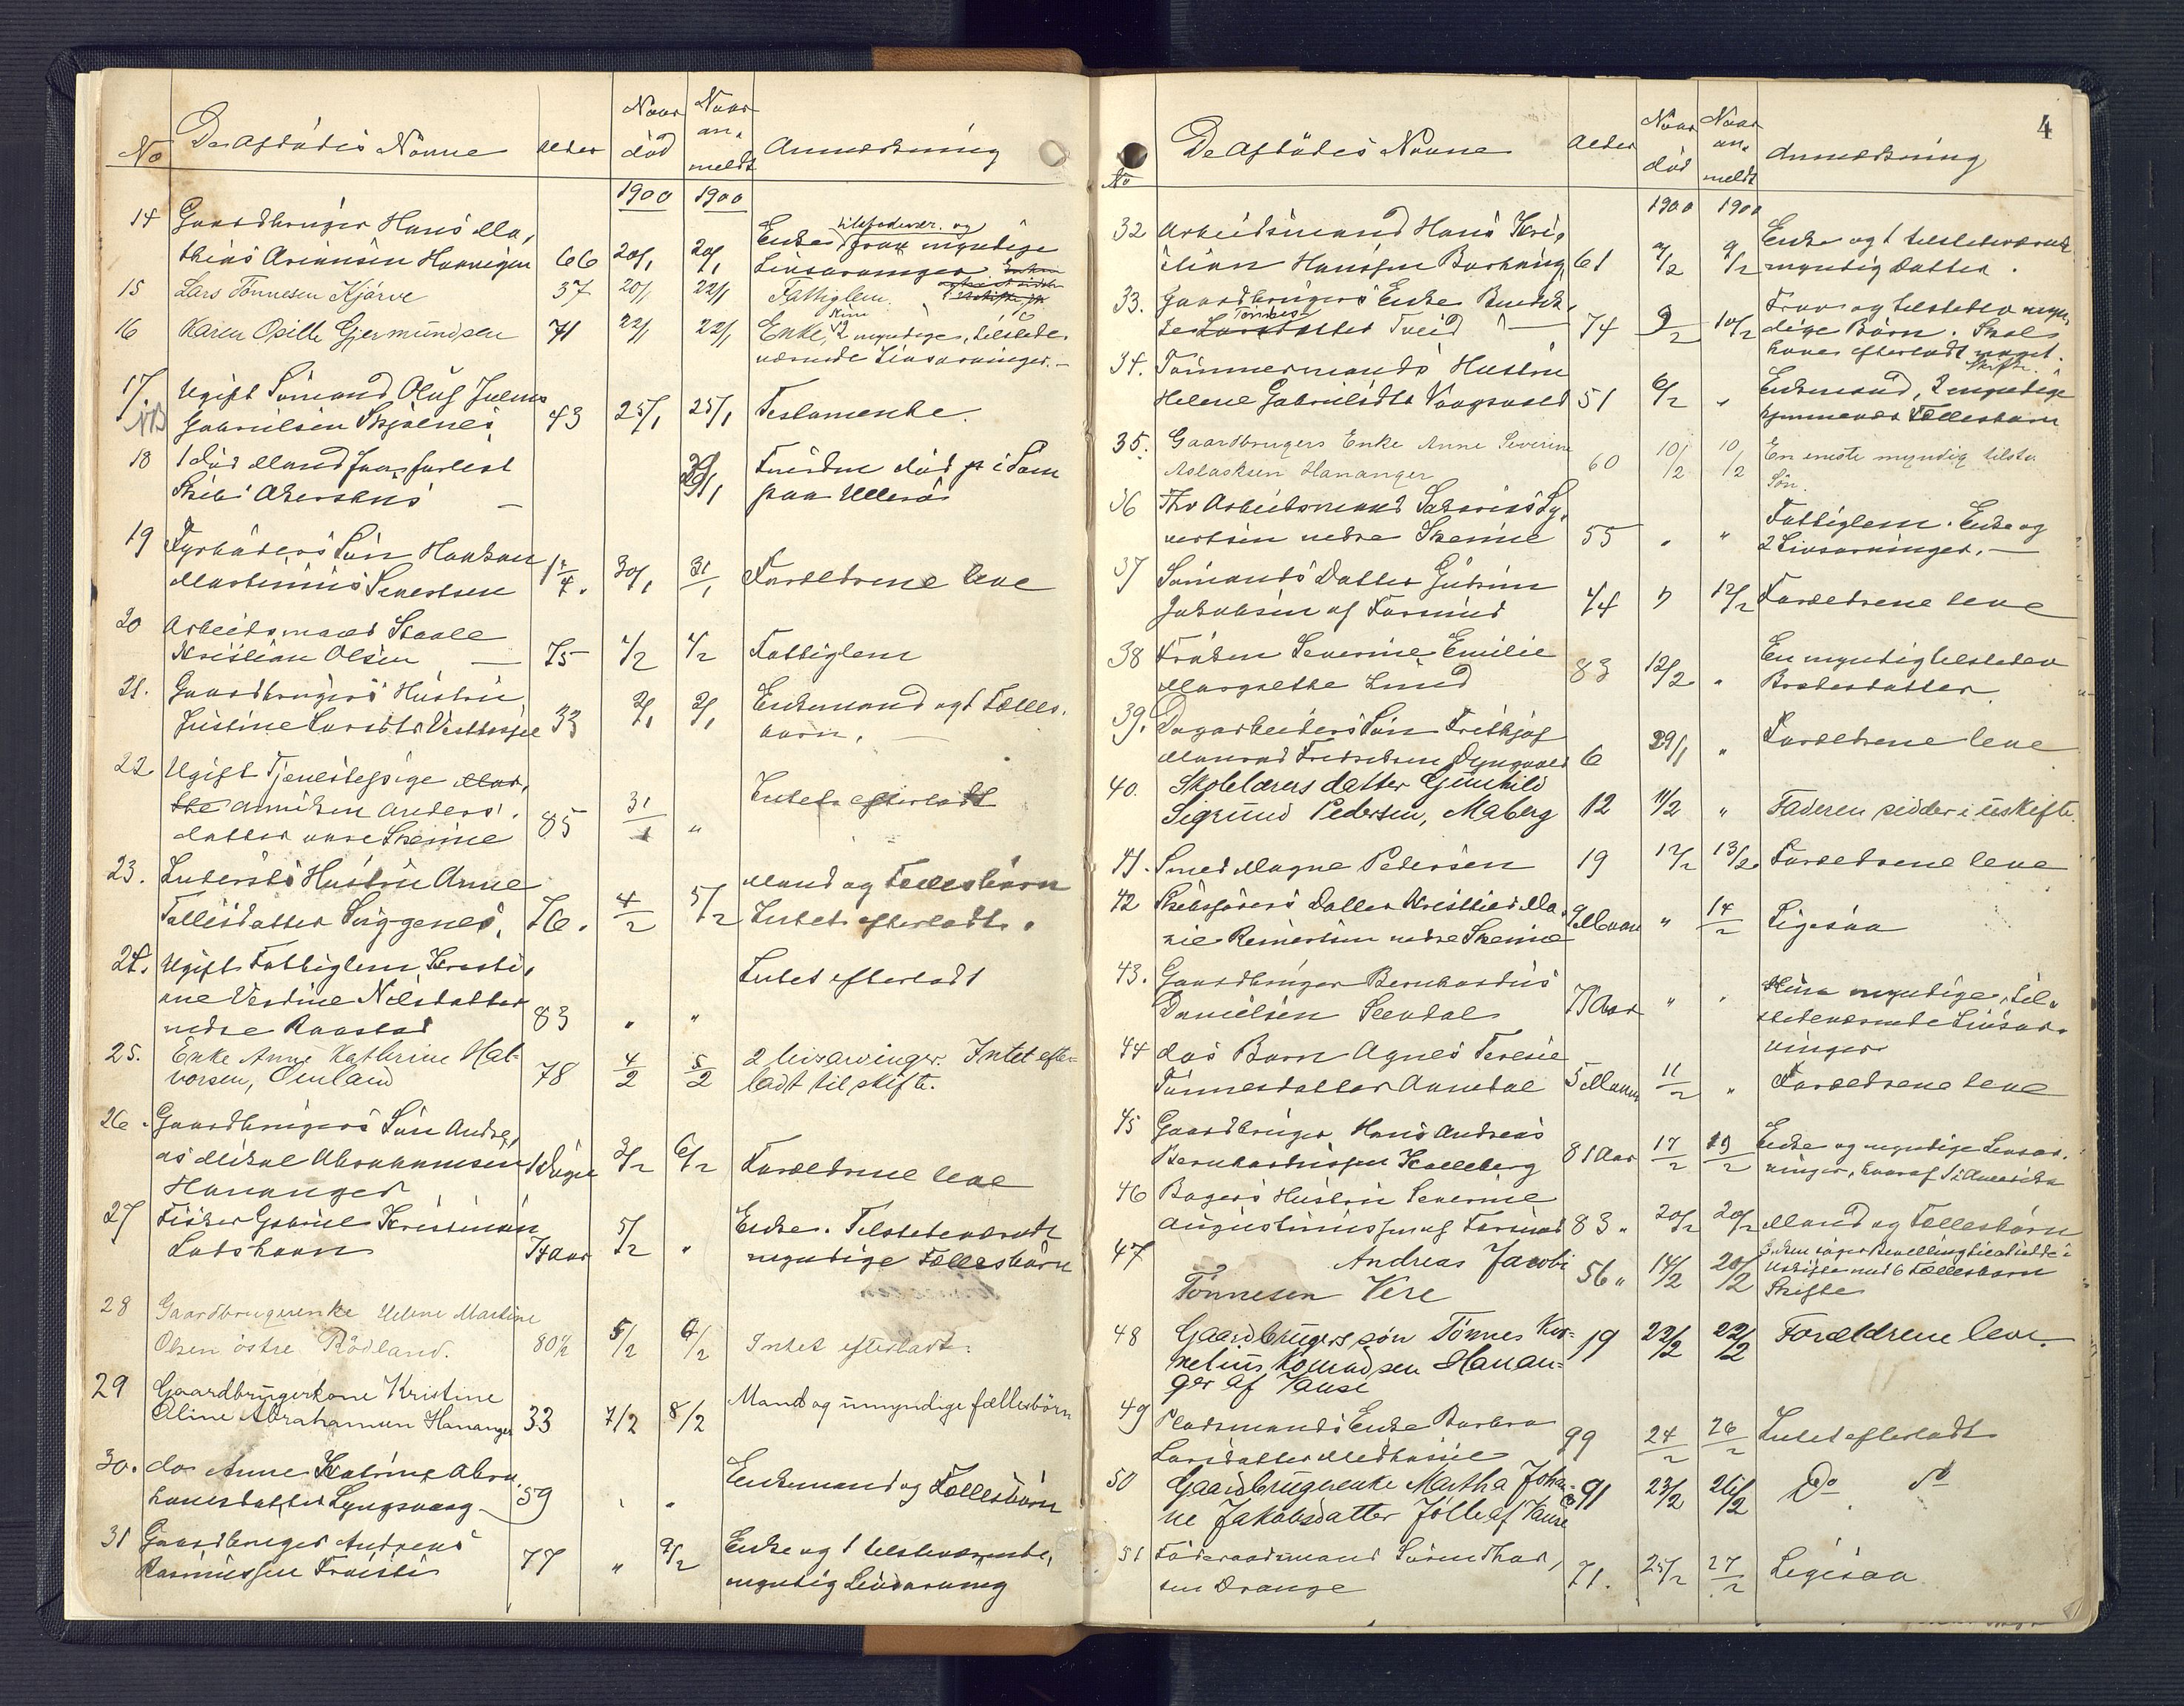 No De Afdødes Navne Alder Naar død Naar anmeldt Anmærkning
1900 1900
14 Gaardbruger Hans Ma,
thias Ariansen Hananger 66 20/1 20/1
Enke, tilstedevær. og
myndige
Livsarvinger.
15 Lars Tönnesen Kjörve 37 20/1 22/1 Fattiglem.
16 Karen Osille Gjermundsen 71 22/1 22/1 Enke, 2 myndige, tilstede
værende Livsarvinger. —
17. Ugift Sömand Oluf Julius
NB Gabrielsen Skjölnes 43 25/1 25/1 Testamente.
18 1 död Mand fra forlist
Skib Akershus — 29/1 Funden död i Söen
paa Ulleröi
19 Fyrböders Sön Haakon
Martinius Severtsen 30/1 31/1 Forældrene leve
20 Arbeidsmand Staale
Kristian Olsen — 75 1/2 1/2 Fattiglem
21. Gaardbrugers Hustru
Justine Larsdtr Vatterøie 33 2/1 2/1 Enkemand og 1 Fælles.
barn. —
22. Ugift Tjenestepige Mar,
the Anniken Anders.
datter øvre Skeime 85 31/1 „ Intet efterladt
23. Inderstes Hustru Anne
Tallisdatter Siggenes, 76. 4/2 5/2 Mand og Fællesbörn
Intet efterladt.
24. Ugift Fattiglem Kristi,
ane Verdine Nilsdatter
nedre Raastad 83 „ „ Intet efterladt
25. Enke Anne Kathrine Hal-
vorsen, Omland 78 4/2 5/2 2 livsarvinger. Intet efter-
ladt til skifte.
26. Gaardbrugers Sön Andre,
as Mikal Abrahamsen
Hananger 1 Dage 3/2 6/2 Forældrene leve
27 Fisker Gabriel Kristiansen
Lodshavn 74 aar 5/2 „ Enke. Tilstedeværende
myndige Fællesbörn
28 Gaardbrugerenke Helene Martine
Olsen östre Rödland. 80½ 5/2 6/2 Intet efterladt.
29 Gaardbrugerkone Kristine
Oline Abrahamsen Hananger 33 7/2 8/2 Mand og umyndige fællesbörn
30. do Anne Katrine Abra,
hamsdatter Lyngsvaag — 59 „ „ Enkemand og Fællesbörn
31 Gaardbruger Andreas
Rasmussen Fröisti 77 „ 9/2 Enke og 1 tilsteværende,
myndig Livsarving
4
No De Afdødes Navne Alder Naar død Naar anmeldt Anmærkning
1900 1900
32 Arbeidsmand Hans Kri,
stian Hanssen Borhaug 61 7/2 9/2 Enke og 1 tilstedeværende
myndig datter.
33. Gaardbrugers Enke Bendik,
te Tönnes
Larsdatter Tveid — 74 9/2 10/2 Fravær og tilstedev myn,
dige Börn. Skal
have efterladt noget.
Skifte.
34. Tömmermands Hustru
Helene Gabrielsdtr Vaagsvold 51 6/2 „ Enkemand, 2 myndige
hjemmevær Fællesbarn
35. Gaardbrugers Enke Anne Severine
Aslaksen Hananger 60 10/2 10/2 En eneste myndig tilste
Sön.
36 Fhv Arbeidsmand Sakarias Sy,
vertsen nedre Skeime 55 „ „ Fattiglem. Enke og
2 Livsarvinger. —
37 Sömands Datter Gudrun
Jakobsen af Farsund „ 12/2 Forældrene leve
38 Fröken Severine Emilie
Margrethe Lund 83 12/2 „ En myndig tilstedev
Broderdatter
39. Dagarbeiders Sön Frithjof
Monrad Fredriksen Dyngvold 6 29/1 „ Forældrene leve
40. Skolelærers datter Gunhild
Sigrund Pedersen, Maberg 12 11/2 „ Faderen sidder i uskifte.
41. Smed Magne Pedersen 19 12/2 13/2 Forældrene leve
42 Skibsförers Datter Kristine Ma.
rie Reinertsen nedre Skeime 9 Maan „ 14/2 Ligesaa
43. Gaardbruger Bernhardus
Danielsen Stevdal 71 Aar „ „ Kun myndige, til„
stedeværende Livsar.
vinger
44 dös Barn Agnes Teresie
Tönnesdatter Aamdal 5 Maan 11/2 „ Forældrene leve
45 Gaardbruger Hans Andreas
Bernhardussen Kalleberg 81 Aar 17/2 19/2 Enke og myndige Livsar.
vinger, hvoraf 1 i Amerika
46 Bagers Hustru Severine
Augustinussen af Farsund 83 „ 20/2 20/2 Mand og Fællesbörn
47 Andreas Jacobi
Tönnesen Vere 56 „ 14/2 20/2 Enken söger Bevilling til at sidde i
Uskifte med 6 Fællesbarn
Skifte
48 Gaardbrugers sön Tönnes Kor-
nelius Konradsen Hanan-
ger af Vanse 19 22/2 22/2 Forældrene leve.
49 Pladsmands Enke Barbra
Larsdatter Midhassel 99 24/2 26/2 Intet efterladt
50 Gaardbrugerenke Martha Johan-
ne Jakobsdatter Jölle af Vanse 91 23/2 26/2 Do do
51 Föderaadsmand Sören Thor,
sen Drange 71. 25/2 27/2 Ligesaa